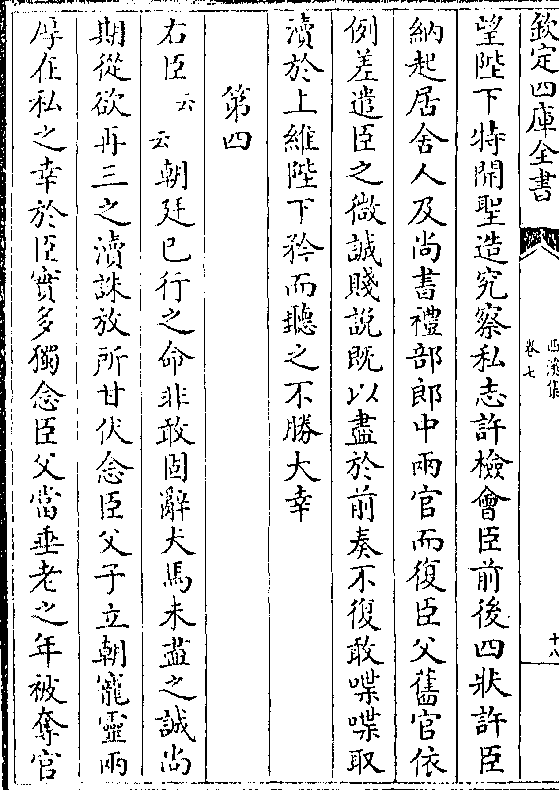 欽定四庫全書
卷七
十八
望陛下特開聖造究察私志許檢會臣前後四狀許臣
納起居舍人及尚書禮部郎中兩官而復臣父舊官依
例差遣臣之微誠賤說既以盡於前奏不復敢喋喋取
瀆於上維陛下矜而聽之不勝大幸
第四
右臣云云朝廷已行之命非敢固辭犬馬未盡之誠尚
期從欲再三之瀆誅放所甘伏念臣父子立朝寵靈兩
厚在私之幸於臣實多獨念臣父當垂老之年被奪官